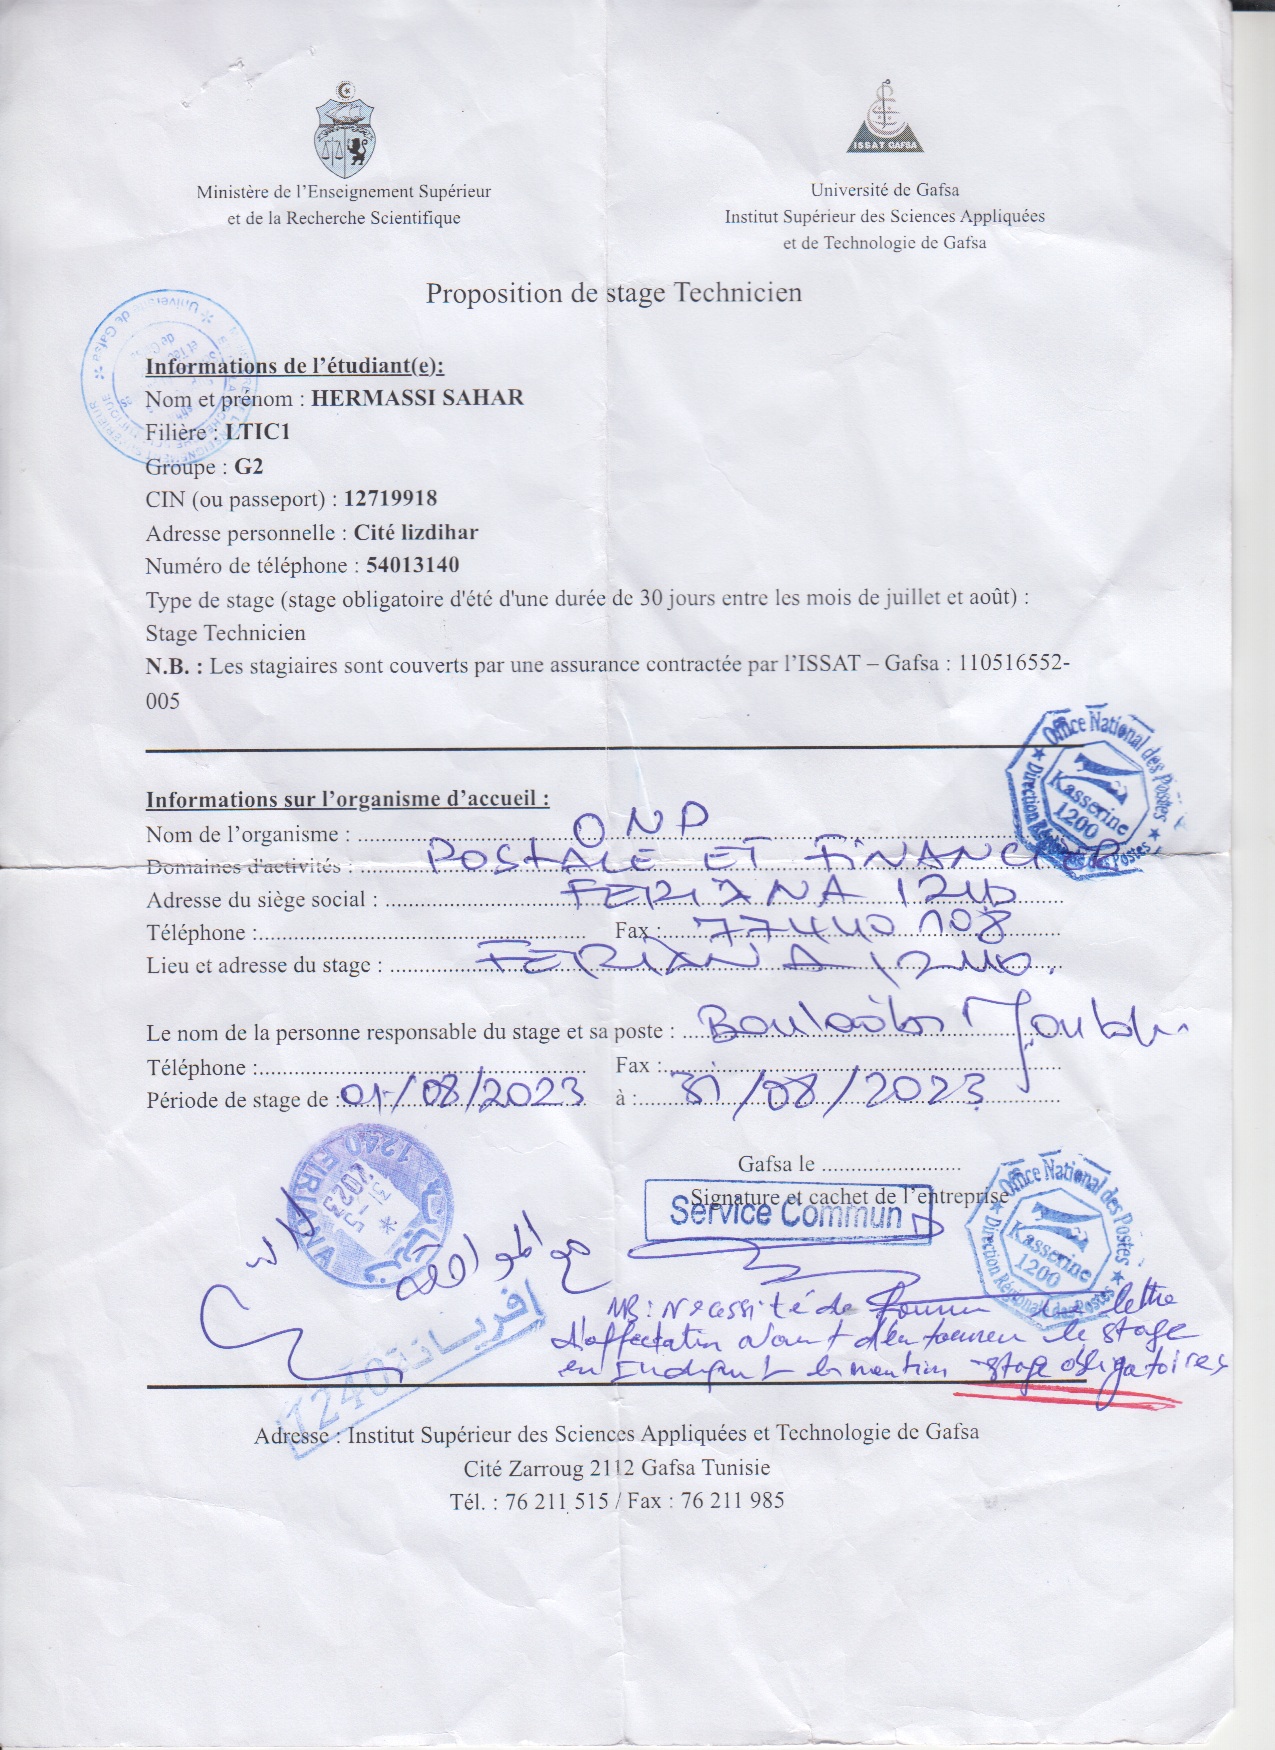 ISSAT GAFSA
Ministère de l'Enseignement Supérieur
et de la Recherche Scientifique
Université de Gafsa
Institut Supérieur des Sciences Appliquées
et de Technologie de Gafsa
Proposition de stage Technicien
Informations de l'étudiant(e):
Nom et prénom : HERMASSI SAHAR
Filière : LTIC1
Groupe : G2
CIN (ou passeport) : 12719918
Adresse personnelle : Cité lizdihar
Numéro de téléphone : 54013140
Type de stage (stage obligatoire d'été d'une durée de 30 jours entre les mois de juillet et août) :
Stage Technicien
N.B. : Les stagiaires sont couverts par une assurance contractée par l'ISSAT – Gafsa : 110516552-
005
Office National des Postes
Kasserine
1200
Direction Régionale des Postes
Informations sur l'organisme d'accueil :
Nom de l'organisme : ONP
Domaines d'activités : POSTALE ET FINANCIER
Adresse du siège social : FERIANA 1240
Téléphone : Fax : 77440108
Lieu et adresse du stage : FERIANA 1240.
Le nom de la personne responsable du stage et sa poste :
Téléphone : Fax :
Période de stage de : 01/08/2023 à : 31/08/2023
1240 FIRIANA
Gafsa le
Signature et cachet de l'entreprise
Service Commun
Office National des Postes
Kasserine
1200
Direction Régionale des Postes
NB : Nécessité de fournir une lettre
d'affectation avant d'entamer le stage
en indiquant la mention stage obligatoires
1240 فريانة
Adresse : Institut Supérieur des Sciences Appliquées et Technologie de Gafsa
Cité Zarroug 2112 Gafsa Tunisie
Tél. : 76 211 515 / Fax : 76 211 985